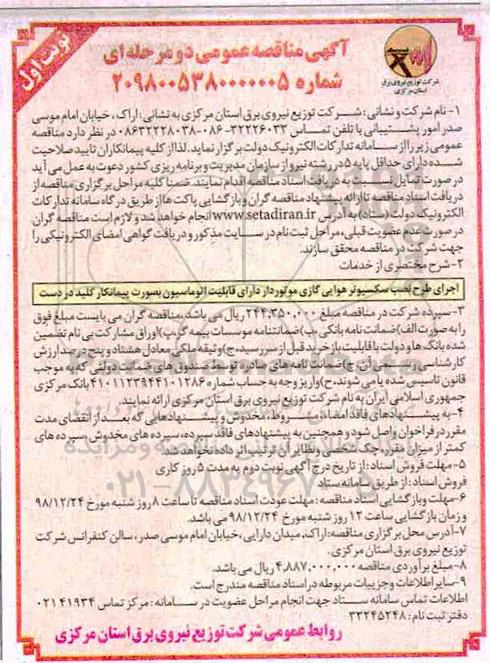 نوبت اول
آگهی مناقصه عمومی دو مرحله ای
شماره ۲۰۹۸۰۰۵۳۸۰۰۰۰۰۰۵
شرکت توزیع نیروی برق
استان مرکزی
۱- نام شرکت و نشانی: شرکت توزیع نیروی برق استان مرکزی به نشانی: اراک، خیابان امام موسی
صدر امور پشتیبانی با تلفن تماس ۳۲۲۲۶۰۳۳-۰۸۶ ۰۸۶۳۲۲۲۸۰۳۸ در نظر دارد مناقصه
عمومی زیر را از سامانه تدارکات الکترونیک دولت برگزار نماید. لذا از کلیه پیمانکاران تایید صلاحیت
شده دارای حداقل پایه ۵ در رشته نیرو از سازمان مدیریت و برنامه ریزی کشور دعوت به عمل می آید
در صورت تمایل نسبت به دریافت اسناد مناقصه اقدام نمایند. ضمنا کلیه مراحل برگزاری مناقصه از
دریافت اسناد مناقصه تا ارائه پیشنهاد مناقصه گران و بازگشایی پاکت ها از طریق درگاه سامانه تدارکات
الکترونیک دولت (ستاد) به آدرس www.setadiran.ir انجام خواهد شد و لازم است مناقصه گران
در صورت عدم عضویت قبلی، مراحل ثبت نام در سایت مذکور و دریافت گواهی امضای الکترونیکی را
جهت شرکت در مناقصه محقق سازند.
۲- شرح مختصری از خدمات
اجرای طرح نصب سکسیونر هوایی گازی موتوردار دارای قابلیت اتوماسیون بصورت پیمانکار کلید در دست
۳- سپرده شرکت در مناقصه مبلغ ۲۴۴,۳۵۰,۰۰۰ ریال می باشد. مناقصه گران می بایست مبلغ فوق
را به صورت الف) ضمانت نامه بانکی، ب) ضمانتنامه موسسات بیمه گر، پ) اوراق مشارکت بی نام تضمین
شده بانک ها و دولت با قابلیت باز خرید قبل از سررسید، ج) وثیقه ملکی معادل هشتاد و پنج درصد ارزش
کارشناسی رسمی آن، چ) ضمانت نامه های صادره توسط صندوق های ضمانت دولتی که به موجب
قانون تاسیس شده یا می شوند، ح) واریز وجه به حساب شماره ۴۱۰۱۱۲۳۹۴۴۱۰۱۲۸۶ بانک مرکزی
جمهوری اسلامی ایران به نام شرکت توزیع نیروی برق استان مرکزی ارائه نمایند.
۴- به پیشنهادهای فاقد امضاء، مشروط، مخدوش و پیشنهادهایی که بعد از انقضای مدت
مقرر در فراخوان واصل شود و همچنین به پیشنهادهای فاقد سپرده، سپرده های مخدوش، سپرده های
کمتر از میزان مقرر، چک شخصی و نظایر آن ترتیب اثر داده نخواهد شد.
۵- مهلت فروش اسناد: از تاریخ درج آگهی نوبت دوم به مدت ۵ روز کاری
فروش اسناد: از طریق سامانه ستاد
۶- مهلت و بازگشایی اسناد مناقصه: مهلت عودت اسناد مناقصه تا ساعت ۸ روز شنبه مورخ ۹۸/۱۲/۲۴
و زمان بازگشایی ساعت ۱۲ روز شنبه مورخ ۹۸/۱۲/۲۴ می باشد.
۷- آدرس محل برگزاری مناقصه: اراک، میدان دارایی، خیابان امام موسی صدر، سالن کنفرانس شرکت
توزیع نیروی برق استان مرکزی.
۸- مبلغ برآوردی مناقصه ۴,۸۸۷,۰۰۰,۰۰۰ ریال می باشد.
۹- سایر اطلاعات و جزییات مربوطه در اسناد مناقصه مندرج است.
اطلاعات تماس سامانه ستاد جهت انجام مراحل عضویت در سامانه: مرکز تماس ۴۱۹۳۴-۰۲۱
دفتر ثبت نام: ۳۳۲۴۵۲۴۸
روابط عمومی شرکت توزیع نیروی برق استان مرکزی